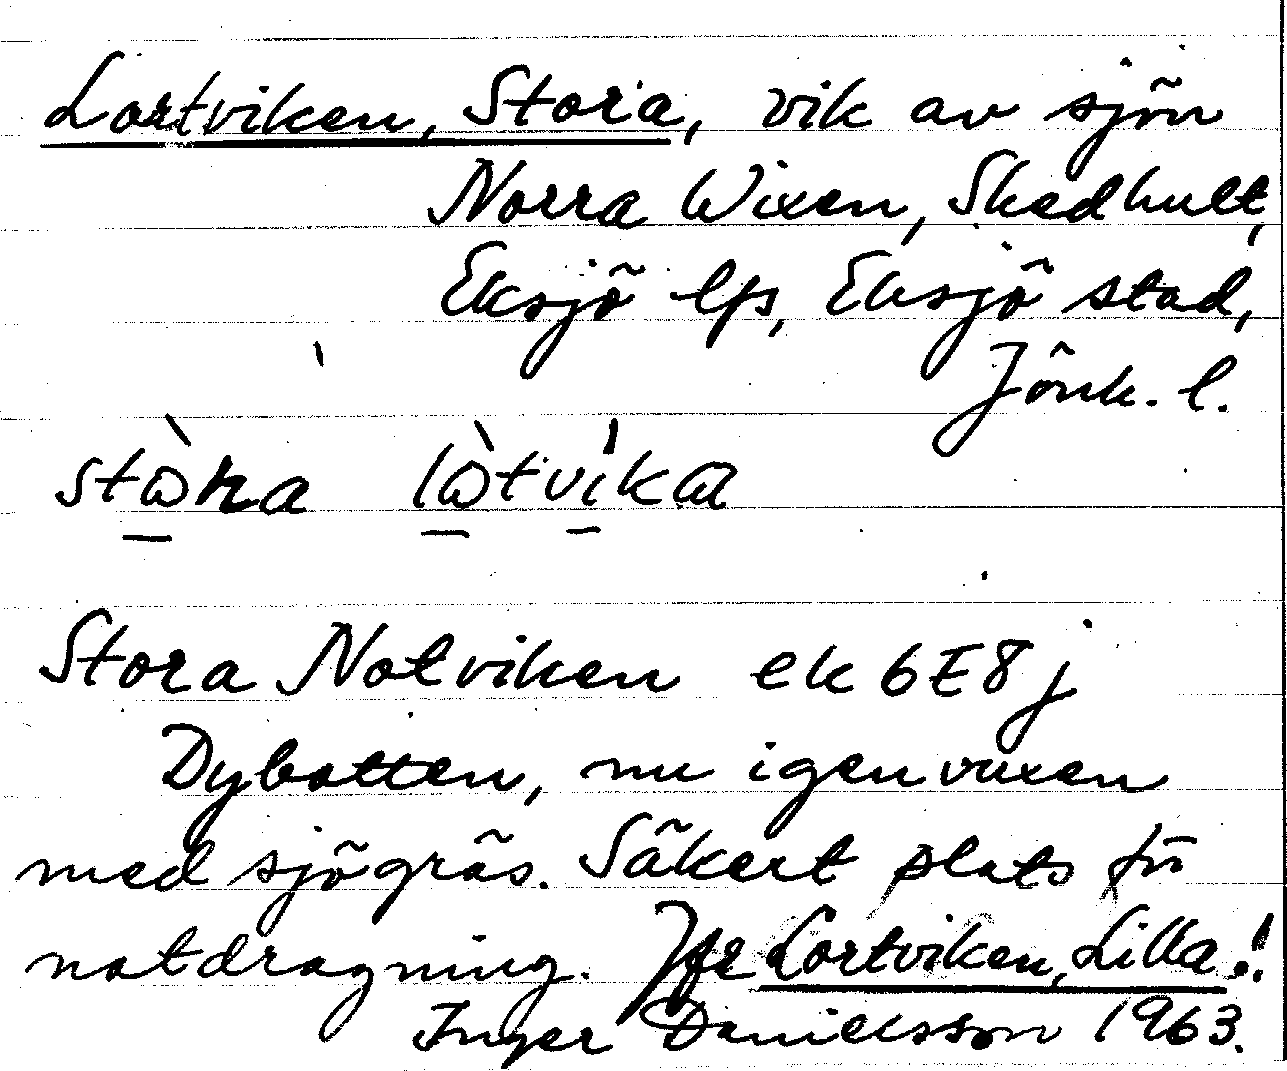 Lortviken, Stora, vik av sjön
Norra Wixen, Skedhult,
Eksjö lfs, Eksjö stad,
Jönk. l.
Stora Notviken ek 6E8j
Dybotten, nu igenvuxen
med sjögräs. Säkert plats för
notdragning. Jfr Lortviken, Lilla!
Inger Danielsson 1963.